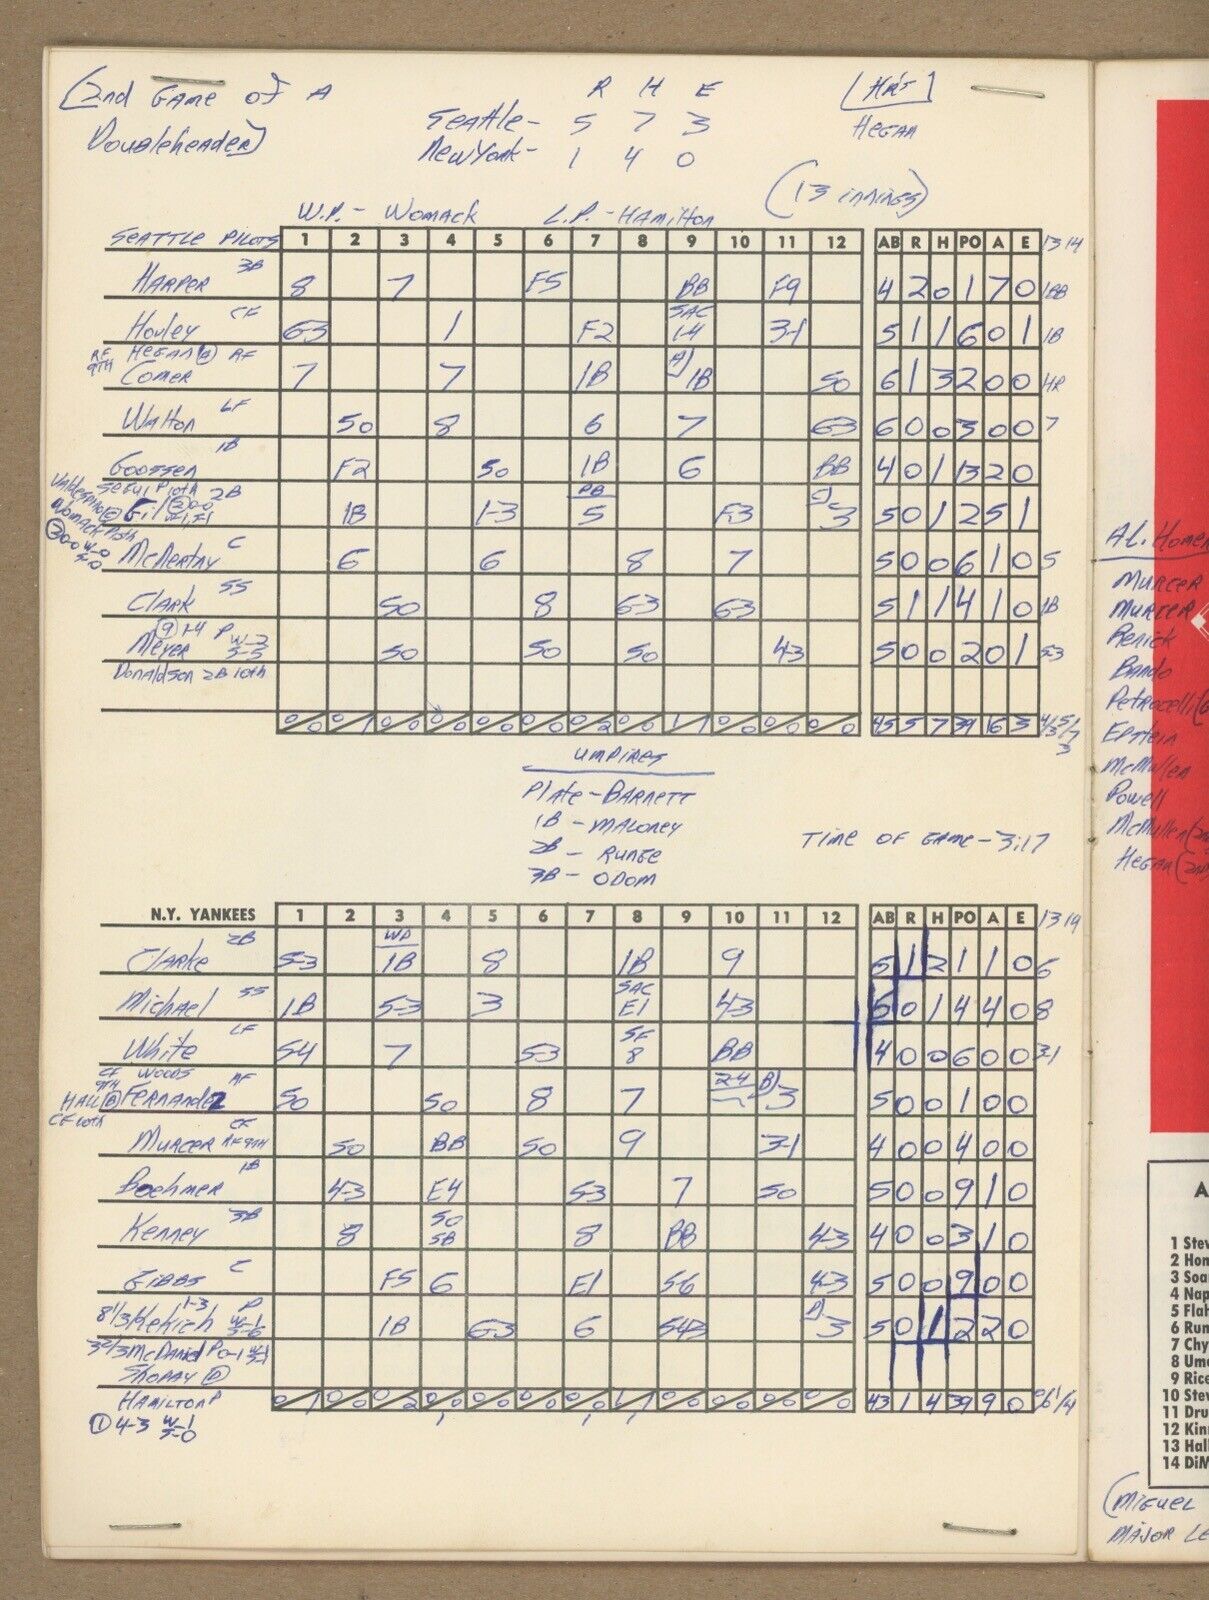 (2nd Game of A Doubleheader)
R H E
Seattle- 5 7 3
New York- 1 4 0
[HR's]
Hegan
(13 innings)
W.P.- Womack L.P.- Hamilton
Seattle Pilots 1 2 3 4 5 6 7 8 9 10 11 12 AB R H PO A E 13 14
Harper 3B 8 7 F5 BB F9 4 2 0 1 7 0 1BB
Hovley CF 6-3 1 F2 SAC 1-4 3-1 5 1 1 6 0 1 1B
RF 9TH Hegan (A) RF
Comer 7 7 1B A) 1B 50 6 1 3 2 0 0 HR
Walton LF 50 8 6 7 6-3 6 0 0 3 0 0 7
Goossen 1B F2 50 1B 6 BB 4 0 1 13 2 0
Segui P 10th 2B
Gil 1B 1-3 PB 5 F3 C) 3 5 0 1 2 5 1
Womack
McNertny C 6 6 8 7 5 0 0 6 1 0 5
Clark SS 50 8 6-3 6-3 5 1 1 4 1 0 1B
(9) 1-4 P W-2 S-5
Meyer 50 50 50 4-3 5 0 0 2 0 1 5-3
Donaldson 2B 10th
0/0 0/1 0/0 0/0 0/0 0/0 0/2 0/0 1/1 0/0 0/0 0/0 45 5 7 39 16 3
Umpires
Plate - Barnett
1B - Maloney
2B - Runge
3B - Odom
Time of Game - 3:17
N.Y. YANKEES 1 2 3 4 5 6 7 8 9 10 11 12 AB R H PO A E 13 14
Clarke 2B 5-3 WP 1B 8 1B 9 5 1 2 1 1 0 6
Michael SS 1B 5-3 3 SAC E1 4-3 5 0 1 4 4 0 8
White LF 54 7 5-3 SF 8 BB 4 0 0 6 0 0 3-1
CF 9TH Woods RF
Hall (B) Fernandez 50 50 8 7 24 B) 3 5 0 0 1 0 0
CF 10th
Murcer CF RF 9TH 50 BB 50 9 3-1 4 0 0 4 0 0
Boehmer 1B 4-3 E4 5-3 7 50 5 0 0 9 1 0
Kenney 3B 8 50 SB 8 BB 4-3 4 0 0 3 1 0
Gibbs C F5 6 E1 5-6 4-3 5 0 0 9 0 0
8 1/3 Kekich 1-3 P W-1 S-6 1B 6-3 6 543 D) 3 5 0 1 2 2 0
3 2/3 McDaniel P 0-1 W-1 S-1
Shopay (D)
Hamilton P 0/0 0/1 0/0 0/2 43 1 4 39 9 0
(1) 4-3 W-1 S-0
AL. Homer
Murcer
Murcer
Renick
Bando
Petrocelli
Epstein
McMullen
Powell
McMullen (2nd
Hegan (2nd
A
1 Stev
2 Hon
3 Soa
4 Nap
5 Flah
6 Run
7 Chy
8 Ume
9 Rice
10 Stev
11 Dru
12 Kin
13 Hal
14 DiM
(Miguel
Major Le